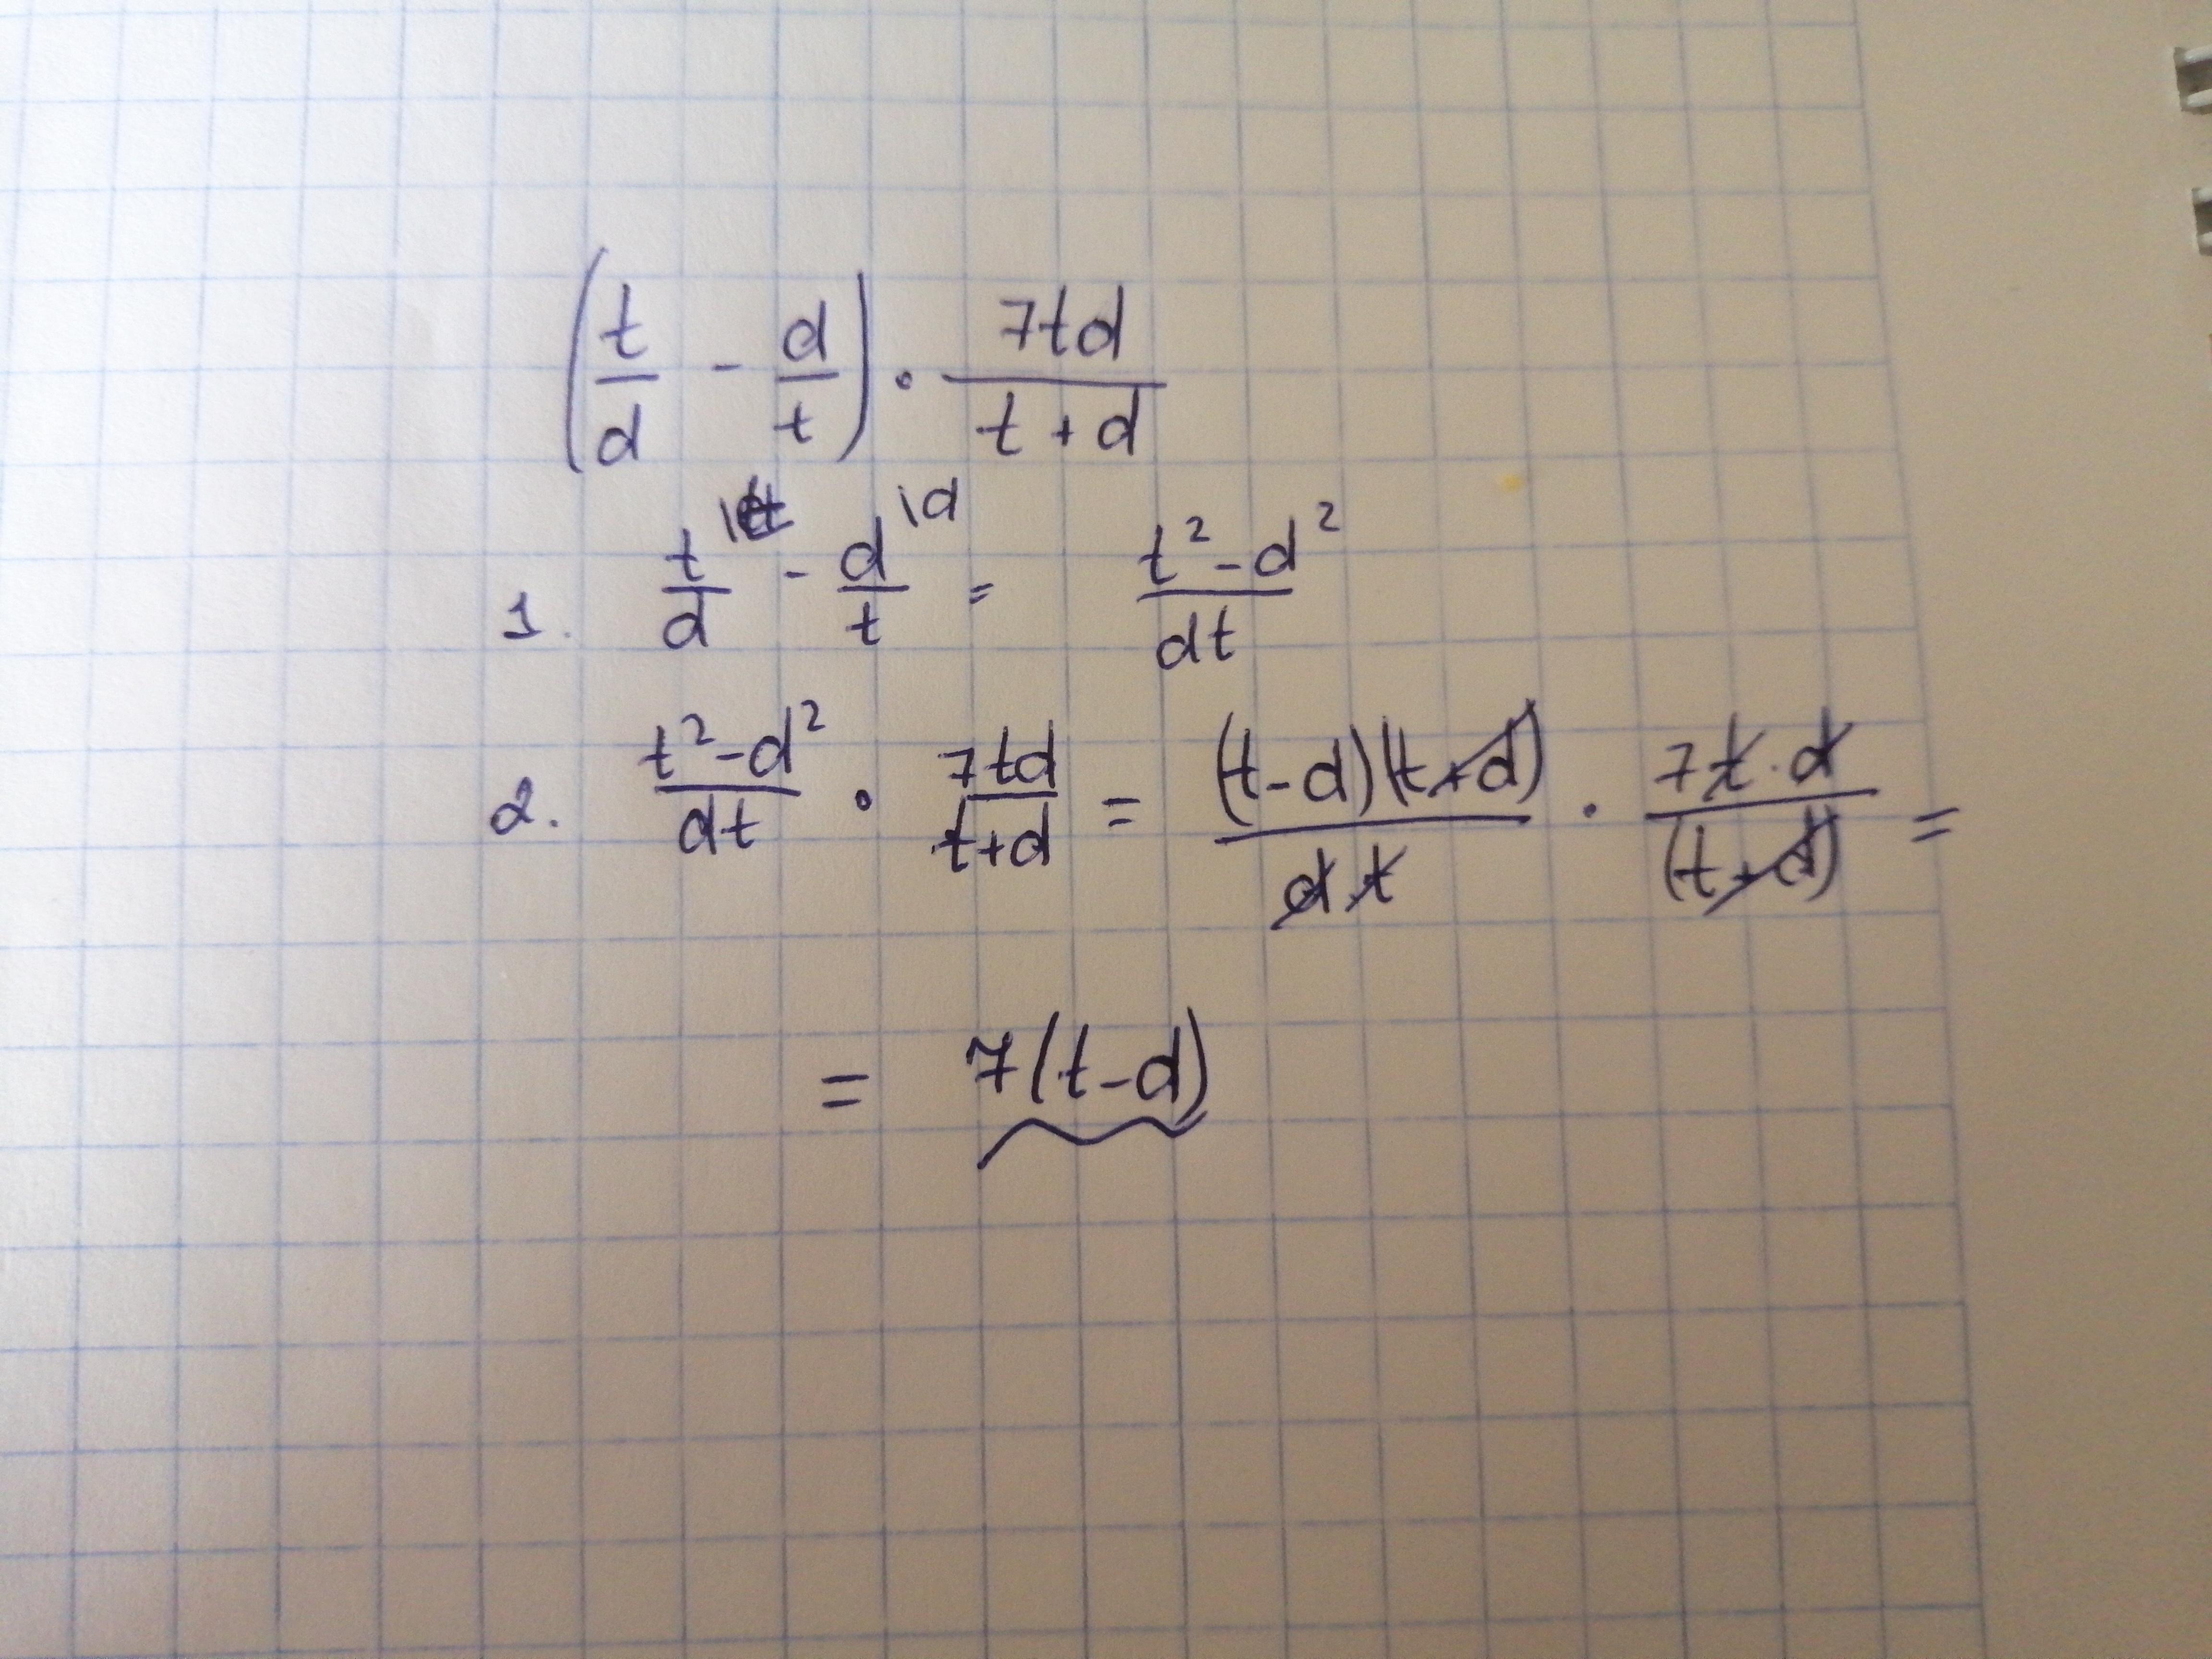 (t/d - d/t) · 7td/(t+d)
1. t/d \t - d/t \d = (t² - d²)/dt
2. (t² - d²)/dt · 7td/(t+d) = (t-d)(t+d)/dt · 7t·d/(t+d) =
= 7(t-d)